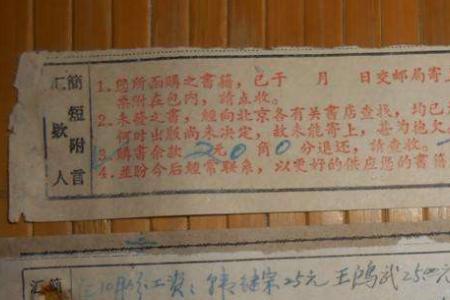 簡短附言
汇款人
1.您所函購之書籍，已于 月 日交邮局寄上
票附在包內，請点收。
2.未發之書，經向北京各有关書店查找，均已
何时出版尚未决定，故未能寄上，甚为抱欠
3.購書余款2元0角0分退还，請查收。
4.並盼今后經常联系，以更好的供应您的書籍
簡
汇
10月份工资：韩继宗25元 王鸿武25